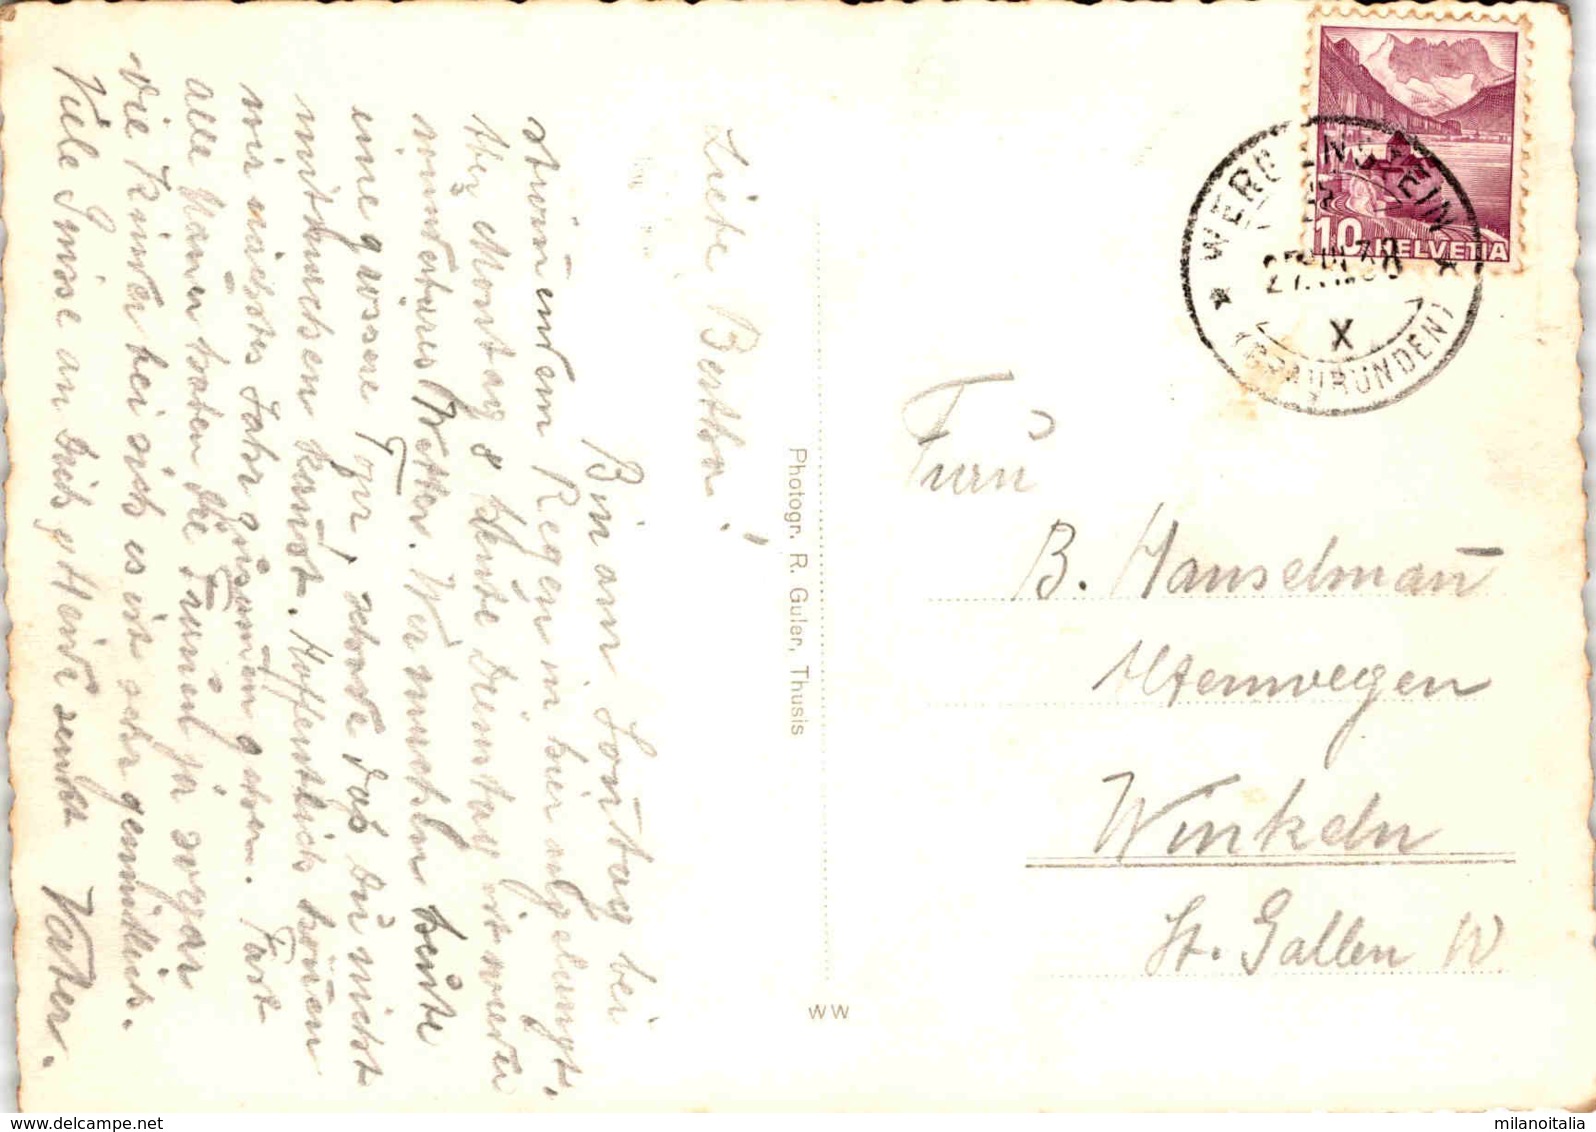 Liebe Bertha!
Bin am Sontag bei
strömendem Regen in hier angelangt,
Montag & heute Dienstag ist wieder
Wetter. Wir machen heute
eine grössere Tour, schade daß du nicht
mitmachen kanst. Hoffentlich könen
wir nächstes Jahr zusamen gehen. Fast
alle Maner haben die Frauen ja sogar
die Kinder bei sich es ist sehr gemütlich.
Viele Grüsse an Dich & Heinr sendet Vater.
Photogr. R. Guler, Thusis
WW
HELVETIA
10
WERGENSTEIN
(GRAUBÜNDEN)
X
Frau
B. Hanselman
Altenwegen
Winkeln
St. Gallen W
www.delcampe.net
milanoitalia